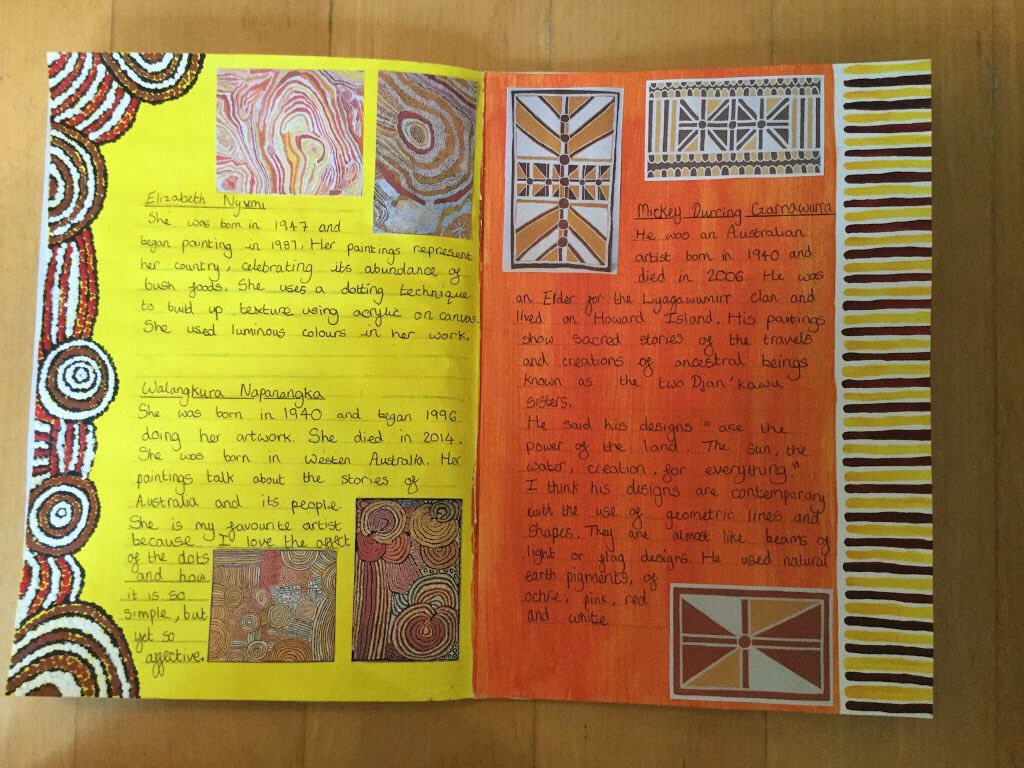 Elizabeth Nyumi
She was born in 1947 and
began painting in 1987. Her paintings represent
her country, celebrating its abundance of
bush foods. She uses a dotting technique
to build up texture using acrylic on canvas.
She used luminous colours in her work.
Walangkura Napanangka
She was born in 1940 and began 1996
doing her artwork. She died in 2014.
She was born in Western Australia. Her
paintings talk about the stories of
Australia and its people.
She is my favourite artist
because I love the affect
of the dots
and how
it is so
simple, but
yet so
affective.
Mickey Durring Garrawurra
He was an Australian
artist born in 1940 and
died in 2006. He was
an Elder for the Liyagawumirr clan and
lived on Howard Island. His paintings
show sacred stories of the travels
and creations of ancestral beings
known as the two Djan'kawu
sisters.
He said his designs "are the
power of the land. The sun, the
water, creation, for everything"
I think his designs are contemporary
with the use of geometric lines and
shapes. They are almost like beams of
light or flag designs. He used natural
earth pigments, of
ochre, pink, red
and white